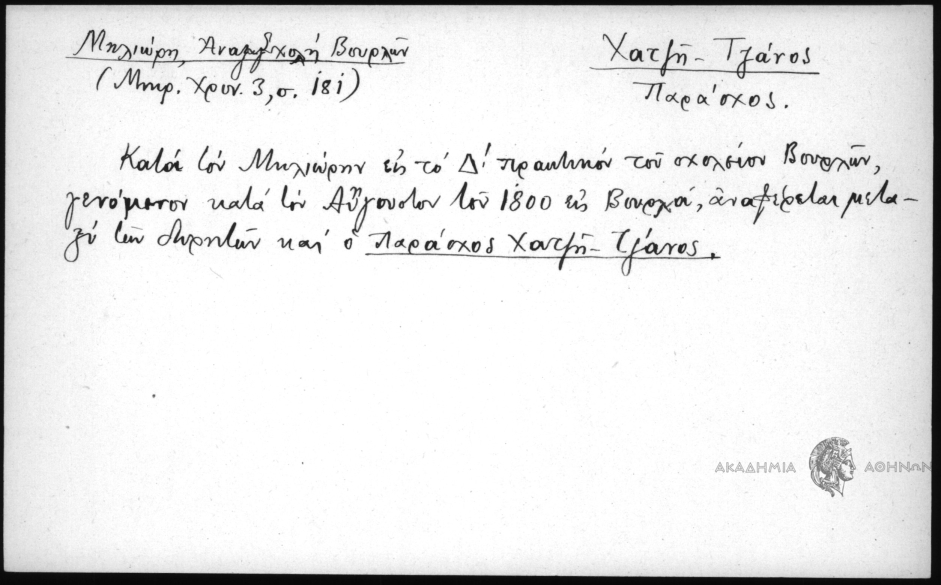 Μηλιώρη, Αναξ. Σχολή Βουρλῶν
(Μικρ. Χρον. 3, σ. 181)
Χατζῆ - Τζάνος
Παράσχος.
Κατά τόν Μηλιώρην εἰς τό Δ! πρακτικόν τοῦ σχολείου Βουρλῶν,
γενόμενον κατά τόν Αὔγουστον τοῦ 1800 εἰς Βουρλά, ἀναφέρεται μετα-
ξύ τῶν καί ὁ Παράσχος Χατζῆ - Τζάνος.
ΑΚΑΔΗΜΙΑ ΑΘΗΝΩΝ